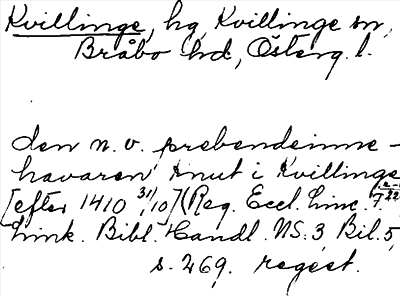 Kvillinge, hg, Kvillinge sn,
Bråbo hd, Österg. l.
den n. v. prebendeinne-
havaren Knut i Kvillinge
[efter 1410 31/10] (Reg. Eccl. Linc. f. 22
Link. Bibl. Handl. NS. 3, Bil. 5,
s. 269. regest.